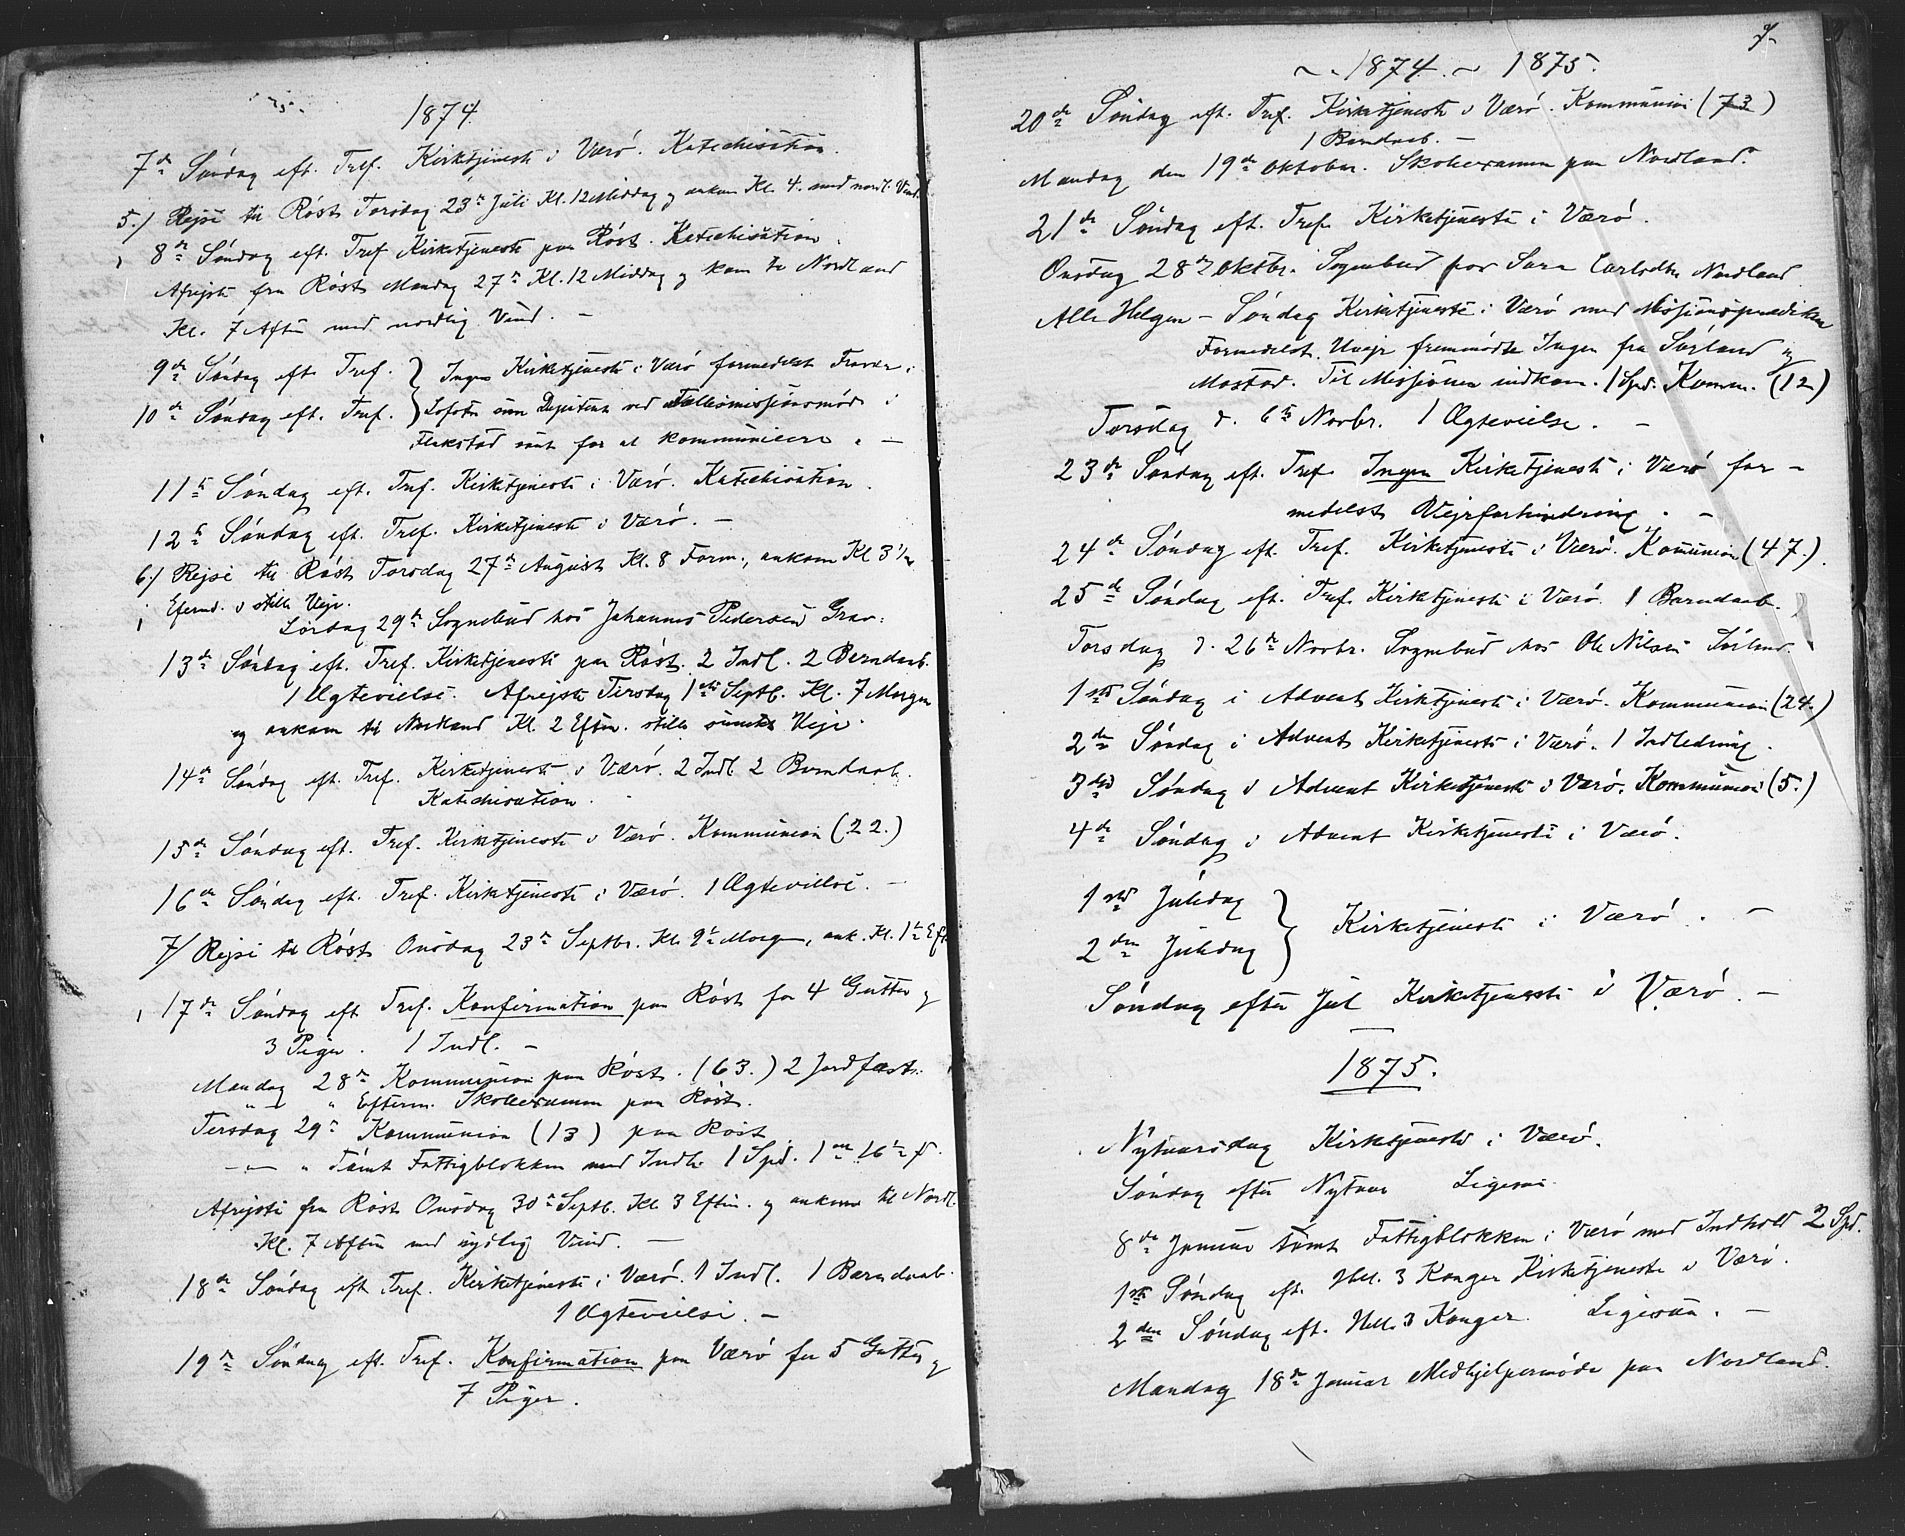 1874
7de Søndag eft. Tref. Kirketjeneste i Værø. Katechisation.
5.) Rejse til Røst Torsdag 23de Juli Kl. 12 Middag og ankom Kl. 4. med nordl. Vind.
8de Søndag eft. Tref. Kirketjeneste paa Røst. Katechisation.
Afrejste fra Røst Mandag 27de Kl. 12 Middag og kom til Nordland
Kl. 7 Aften med nordlig Vind. –
9de Søndag eft. Tref. } Ingen Kirketjeneste i Værø formedelst Fravær i
10de Søndag eft. Tref. } Lofoten som ved Fællesmissionsmøde i
Flakstad samt for at kommunicere. –
11te Søndag eft. Tref. Kirketjeneste i Værø. Katechisation.
12te Søndag eft. Tref. Kirketjeneste i Værø. –
6.) Rejse til Røst Torsdag 27de August Kl. 8 Form., ankom Kl 3 1/2
Efterm. i stille Vejr.
Lørdag 29de Sognebud hos Johannes Pedersen
13de Søndag eft. Tref. Kirketjeneste paa Røst. 2 Indl. 2 Barndaab.
1 Ægtevielse. Afrejste Tirsdag 1ste Septb. Kl. 7 Morgen
og ankom til Nordland Kl. 2 Efterm. stille smukt Vejr.
14de Søndag eft. Tref. Kirketjeneste i Værø. 2 Indl. 2 Barndaab.
Katechisation.
15de Søndag eft. Tref. Kirketjeneste i Værø. Kommunion (22.)
16de Søndag eft. Tref. Kirketjeneste i Værø. 1 Ægtevielse. –
7/ Rejse til Røst Onsdag 23de Septbr. Kl. Morgen, ank. Kl. Eft.
17de Søndag eft. Tref. Konfirmation paa Røst for 4 Gutter og
3 Piger. 1 Indl. –
Mandag 28de Kommunion paa Røst. (63.) 2 Jordfæst.
" " " Efterm. Skoleexamen paa Røst.
Tirsdag 29de Kommunion (13) paa Røst
— " — " Tømt Fattigblokken med Indh. 1 Spd. 1 16
Afrejste fra Røst Onsdag 30te Septb. Kl. 3 Efterm. og ankom til Nordl.
Kl. 7 Aften med sydlig Vind. —
18de Søndag eft Tref. Kirketjeneste i Værø. 1 Indl. 1 Barndaab.
1 Ægtevielse. –
19de Søndag eft. Tref. Konfirmation paa Værø for 5 Gutter og
7 Piger.
7
~ 1874. ~ 1875.
20de Søndag eft. Tref. Kirketjeneste i Værø. Kommunion (73)
1 Barndaab. –
Mandag den 19de Oktober. Skoleexamen paa Nordland.
21de Søndag eft. Tref. Kirketjeneste i Værø.
Onsdag 28de Oktbr. Sognebud for Sara Carlsdtr. Nordland
Alle Helgen – Søndag Kirketjeneste i Værø med Missionsprædiken
Formedelst Uvejr fremmødte Ingen fra Sørland og
Mostad. Til Missionen indkom. 1 Spd. Komm. (12)
Torsdag d. 6te Novbr. 1 Ægtevielse. –
23de Søndag eft. Tref. Ingen Kirketjeneste i Værø for-
medelst Vejrforhindring. –
24de Søndag eft. Tref. Kirketjeneste i Værø. Kommunion (47.).
25de Søndag eft. Tref. Kirketjeneste i Værø. 1 Barndaab.
Torsdag d. 26de Novbr. Sognebud hos Ole Nilsen Sørland
1ste Søndag i Advent Kirketjeneste i Værø. Kommunion (24.)
2den Søndag i Advent Kirketjeneste i Værø. 1 Indledning.
3die Søndag i Advent Kirketjeneste i Værø. Kommunion (5.)
4de Søndag i Advent Kirketjeneste i Værø.
1ste Juledag }
2den Juledag } Kirketjeneste i Værø. –
Søndag efter Jul Kirketjeneste i Værø. –
1875.
Nytaarsdag Kirketjeneste i Værø.
Søndag efter Nytaar Ligesaa.
8de Januar tømt Fattigblokken i Værø med Indhold 2 Spd.
1ste Søndag eft. Hell. 3 Konger Kirketjeneste i Værø.
2den Søndag eft. Hell. 3 Konger. Ligesaa. –
Mandag 18de Januar Medhjelpermøde paa Nordland.